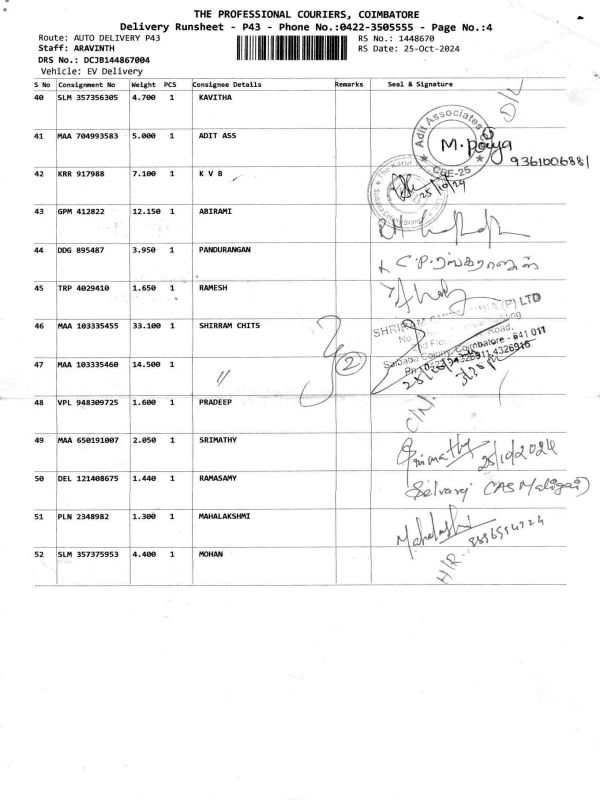 THE PROFESSIONAL COURIERS, COIMBATORE
Delivery Runsheet - P43 - Phone No.:0422-3505555 - Page No.:4
Route: AUTO DELIVERY P43 RS No.: 1448670
Staff: ARAVINTH RS Date: 25-Oct-2024
DRS No.: DCJB144867004
Vehicle: EV Delivery
S No Consignment No Weight PCS Consignee Details Remarks Seal & Signature
40 SLM 357356305 4.700 1 KAVITHA D/L
41 MAA 704993583 5.000 1 ADIT ASS
Adit Associates
M. Priya
CBE-25
9361006881
42 KRR 917988 7.100 1 K V B
The Karur
25/10/24
43 GPM 412822 12.150 1 ABIRAMI
44 DDG 895487 3.950 1 PANDURANGAN
45 TRP 4029410 1.650 1 RAMESH
46 MAA 103335455 33.100 1 SHIRRAM CHITS
(P) LTD
Road,
Saibaba Colony, Coimbatore - 641 011
47 MAA 103335460 14.500 1 〃 2
48 VPL 948309725 1.600 1 PRADEEP
49 MAA 650191007 2.050 1 SRIMATHY Srimathy 25/10/2024
50 DEL 121408675 1.440 1 RAMASAMY Selvaraj (AS Maligai)
51 PLN 2348982 1.300 1 MAHALAKSHMI Mahalakshmi
52 SLM 357375953 4.400 1 MOHAN